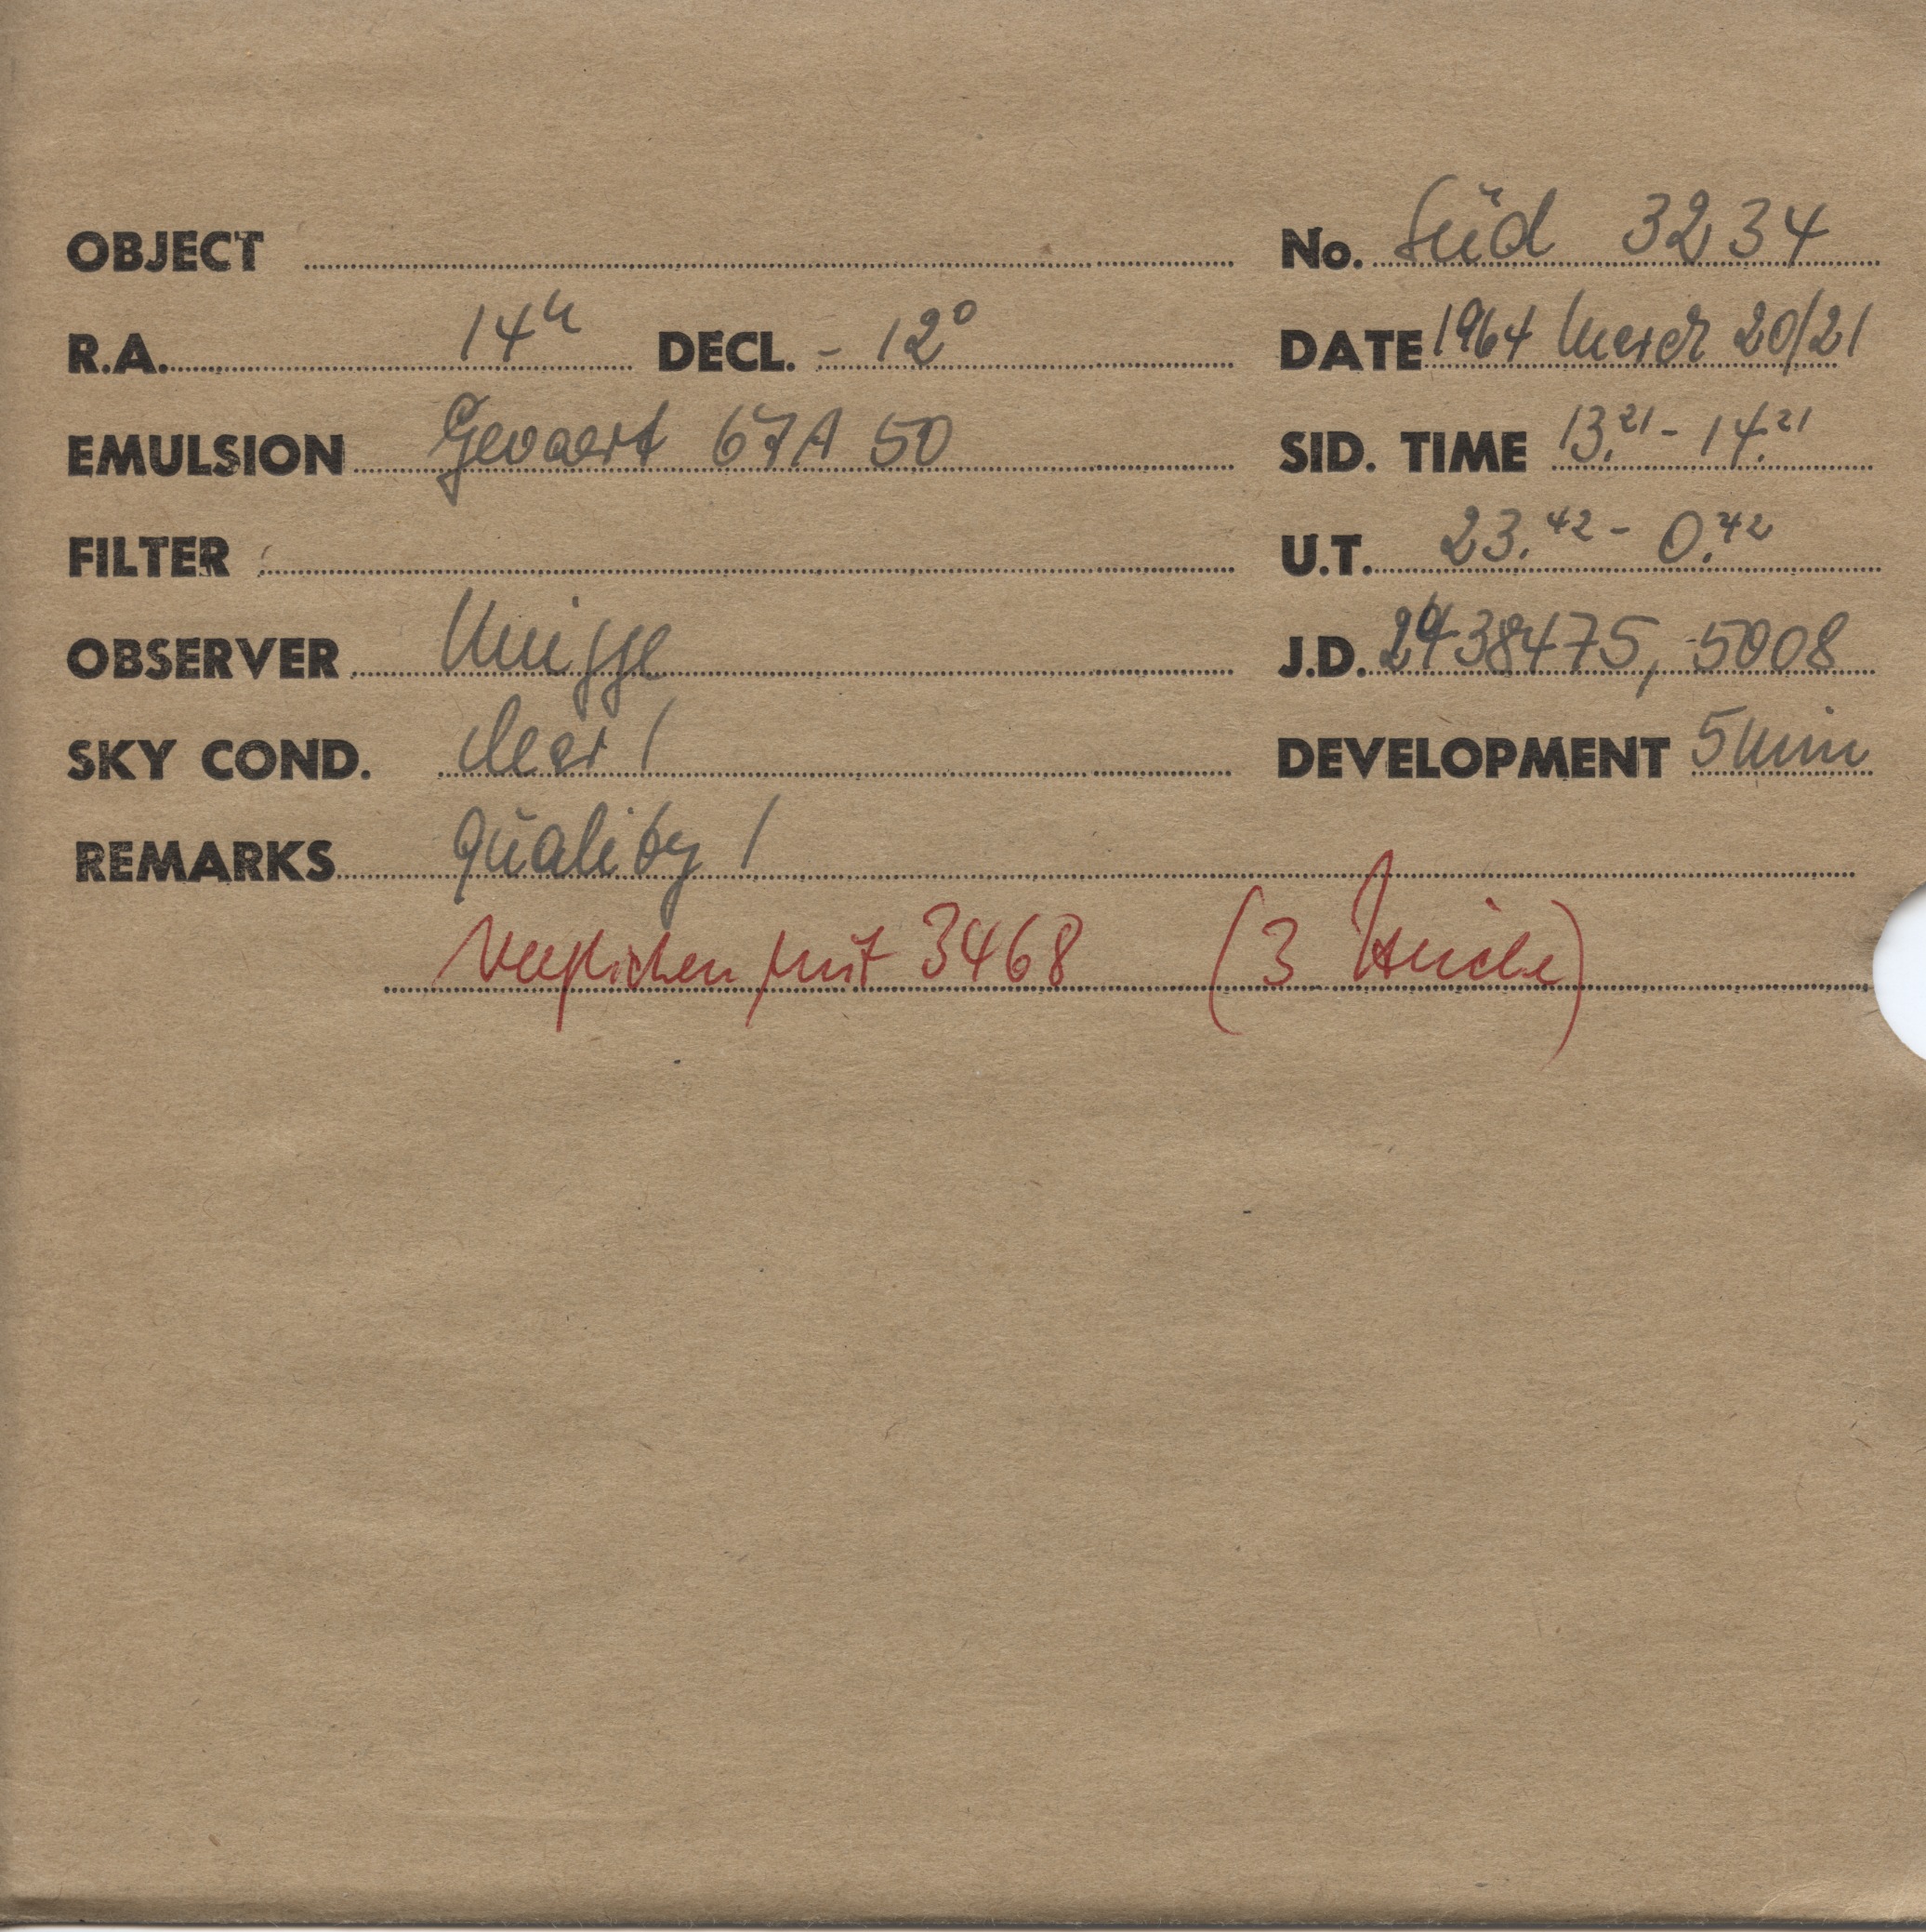 OBJECT No. Süd 3234
R.A. 14h DECL. - 12°
DATE 1964 March 20/21
EMULSION Gevaert 67A 50
SID. TIME 13.21 - 14.21
FILTER
U.T. 23.42 - 0.42
OBSERVER
J.D. 2438475, 5008
SKY COND. clear 1
DEVELOPMENT 5 min
REMARKS quality 1
verglichen mit 3468 (3